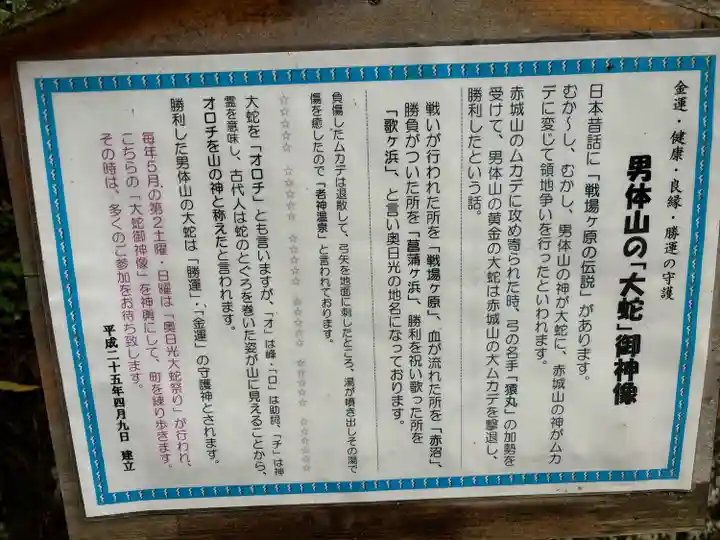 金運・健康・良縁・勝運の守護
男体山の「大蛇」御神像
日本昔話に「戦場ヶ原の伝説」があります。
むか～し、むかし、男体山の神が大蛇に、赤城山の神がムカ
デに変じて領地争いを行ったといわれます。
赤城山のムカデに攻め寄られた時、弓の名手「猿丸」の加勢を
受けて、男体山の黄金の大蛇は赤城山の大ムカデを撃退し、
勝利したという話。
戦いが行われた所を「戦場ヶ原」、血が流れた所を「赤沼」、
勝負がついた所を「菖蒲ヶ浜」、勝利を祝い歌った所を
「歌ヶ浜」、と言い奥日光の地名になっております。
負傷したムカデは退散して、弓矢を地面に刺したところ、湯が噴き出しその湯で
傷を癒したので「老神温泉」と言われております。
大蛇を「オロチ」とも言いますが、「オ」は峰・「ロ」は助詞、「チ」は神
霊を意味し、古代人は蛇のとぐろを巻いた姿が山に見えることから、
オロチを山の神と称えたと言われます。
勝利した男体山の大蛇は「勝運」・「金運」の守護神とされます。
毎年５月の第２土曜・日曜は「奥日光大蛇祭り」が行われ、
こちらの「大蛇御神像」を神輿にして、町を練り歩きます。
その時は、多くのご参加をお待ち致します。
平成二十五年四月九日　建立